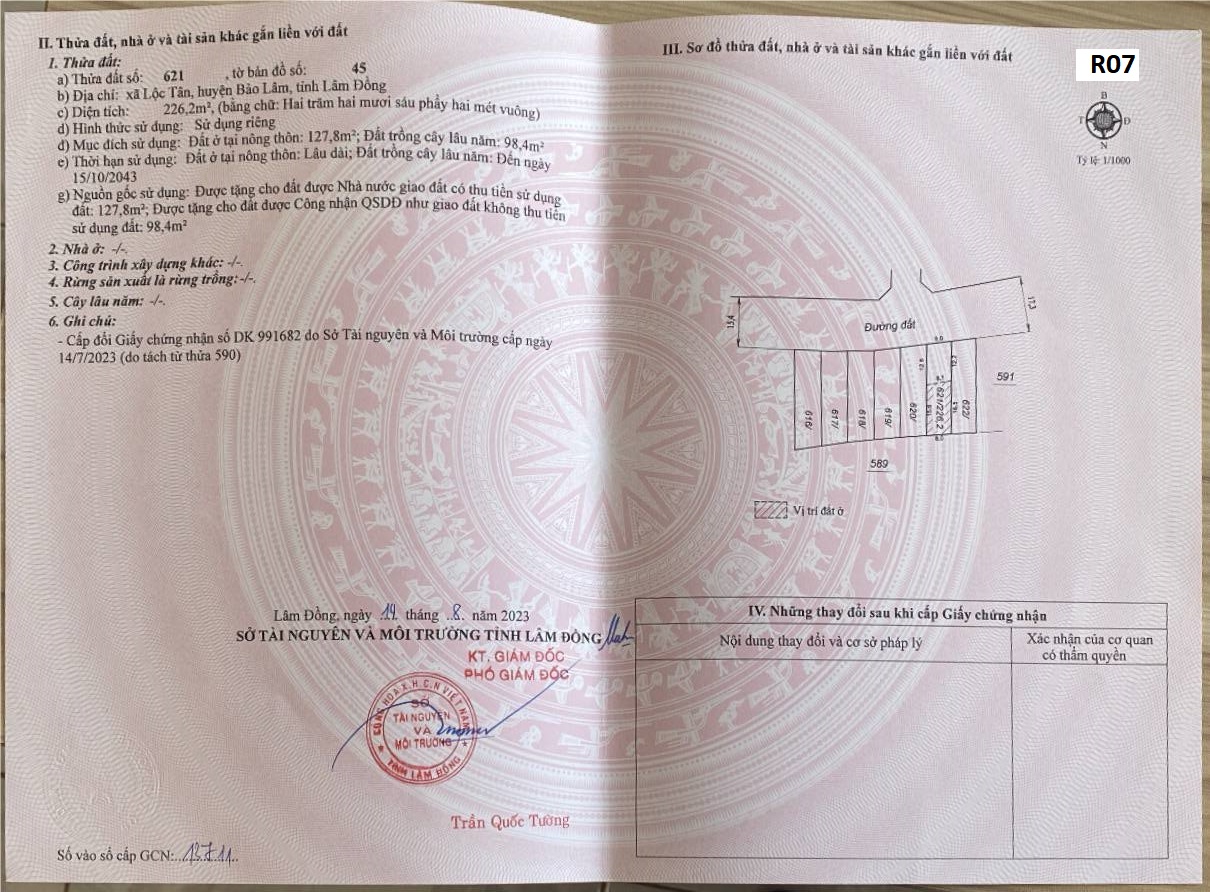 II. Thửa đất, nhà ở và tài sản khác gắn liền với đất
1. Thửa đất:
a) Thửa đất số: 621 , tờ bản đồ số: 45
b) Địa chỉ: xã Lộc Tân, huyện Bảo Lâm, tỉnh Lâm Đồng
c) Diện tích: 226,2m², (bằng chữ: Hai trăm hai mươi sáu phẩy hai mét vuông)
d) Hình thức sử dụng: Sử dụng riêng
đ) Mục đích sử dụng: Đất ở tại nông thôn: 127,8m²; Đất trồng cây lâu năm: 98,4m²
e) Thời hạn sử dụng: Đất ở tại nông thôn: Lâu dài; Đất trồng cây lâu năm: Đến ngày
15/10/2043
g) Nguồn gốc sử dụng: Được tặng cho đất được Nhà nước giao đất có thu tiền sử dụng
đất: 127,8m²; Được tặng cho đất được Công nhận QSDĐ như giao đất không thu tiền
sử dụng đất: 98,4m²
2. Nhà ở: -/-.
3. Công trình xây dựng khác: -/-.
4. Rừng sản xuất là rừng trồng: -/-.
5. Cây lâu năm: -/-.
6. Ghi chú:
- Cấp đổi Giấy chứng nhận số DK 991682 do Sở Tài nguyên và Môi trường cấp ngày
14/7/2023 (do tách từ thửa 590)
Lâm Đồng, ngày 14 tháng 8 năm 2023
SỞ TÀI NGUYÊN VÀ MÔI TRƯỜNG TỈNH LÂM ĐỒNG
KT. GIÁM ĐỐC
PHÓ GIÁM ĐỐC
CỘNG HÒA X.H.C.N VIỆT NAM
SỞ
TÀI NGUYÊN
VÀ
MÔI TRƯỜNG
TỈNH LÂM ĐỒNG
Trần Quốc Tường
Số vào sổ cấp GCN: 13711
III. Sơ đồ thửa đất, nhà ở và tài sản khác gắn liền với đất
R07
B
T
Đ
N
Tỷ lệ: 1/1000
15,4
17,3
Đường đất
591
616/
617/
618/
619/
620/
621/226,2
622/
589
Vị trí đất ở
IV. Những thay đổi sau khi cấp Giấy chứng nhận
Nội dung thay đổi và cơ sở pháp lý
Xác nhận của cơ quan
có thẩm quyền